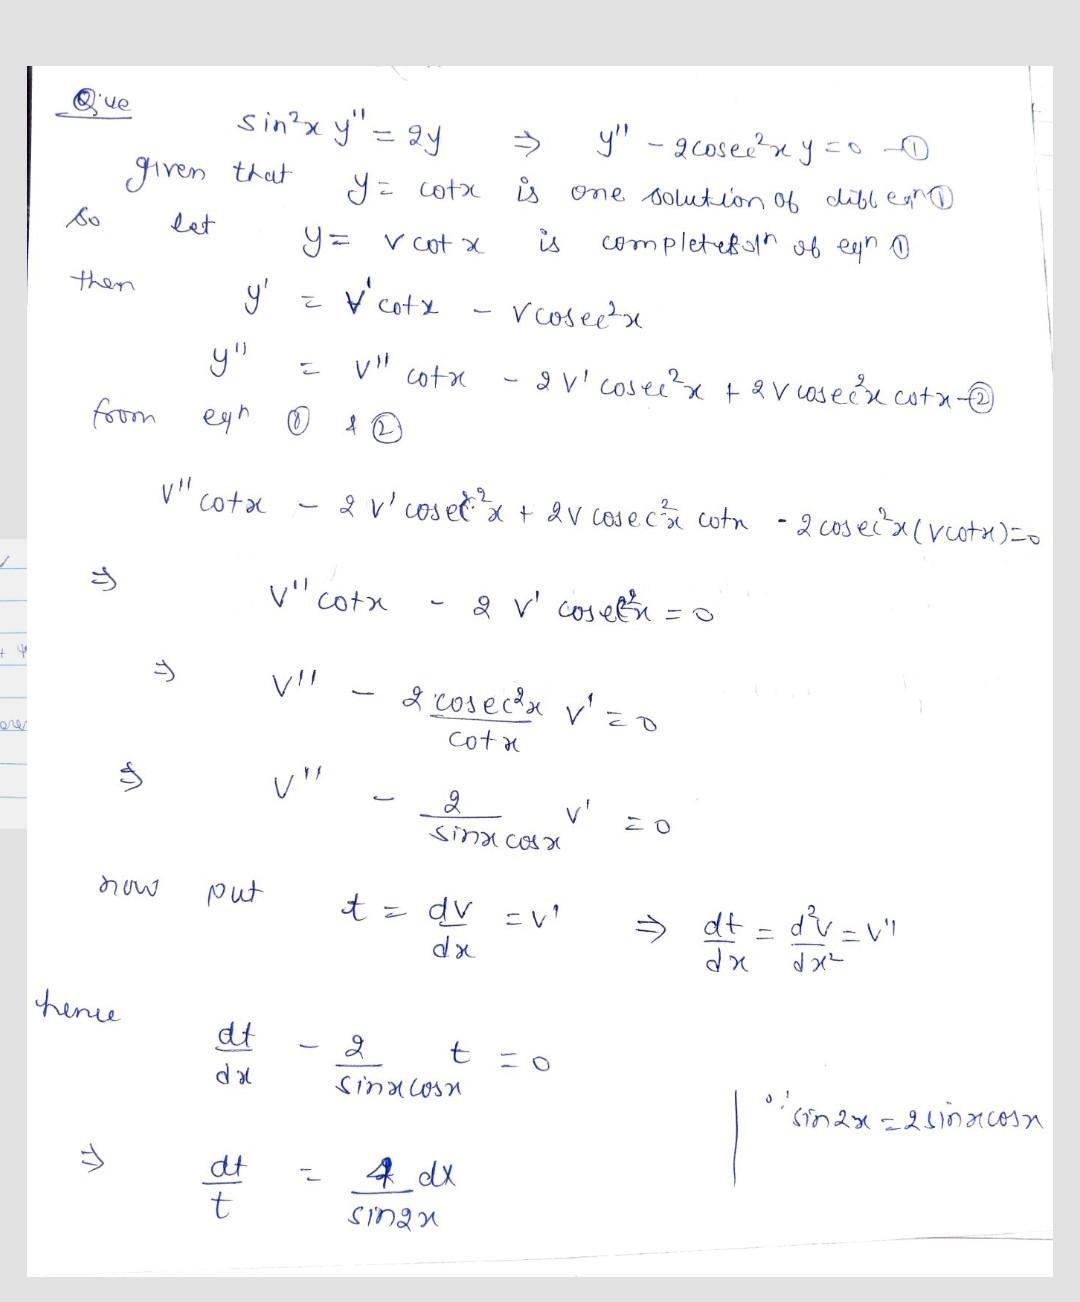 Que
sin²x y'' = 2y ⇒ y'' - 2cosec²x y = 0 —①
given that y = cotx is one solution of diff eqn ①
so let y = v cotx is complete soln of eqn ①
then y' = v'cotx - vcosec²x
y'' = v'' cotx - 2v' cosec²x + 2v cosec²x cotx —②
from eqn ① & ②
v'' cotx - 2v' cosec²x + 2v cosec²x cotx - 2cosec²x(vcotx)=0
⇒ v'' cotx - 2v' cosec²x = 0
⇒ v'' - 2cosec²x/cotx v' = 0
⇒ v'' - 2/sinx cosx v' = 0
now put t = dv/dx = v' ⇒ dt/dx = d²v/dx² = v''
hence dt/dx - 2/sinx cosx t = 0
∵ sin2x = 2sinxcosx
⇒ dt/t = 4 dx/sin2x